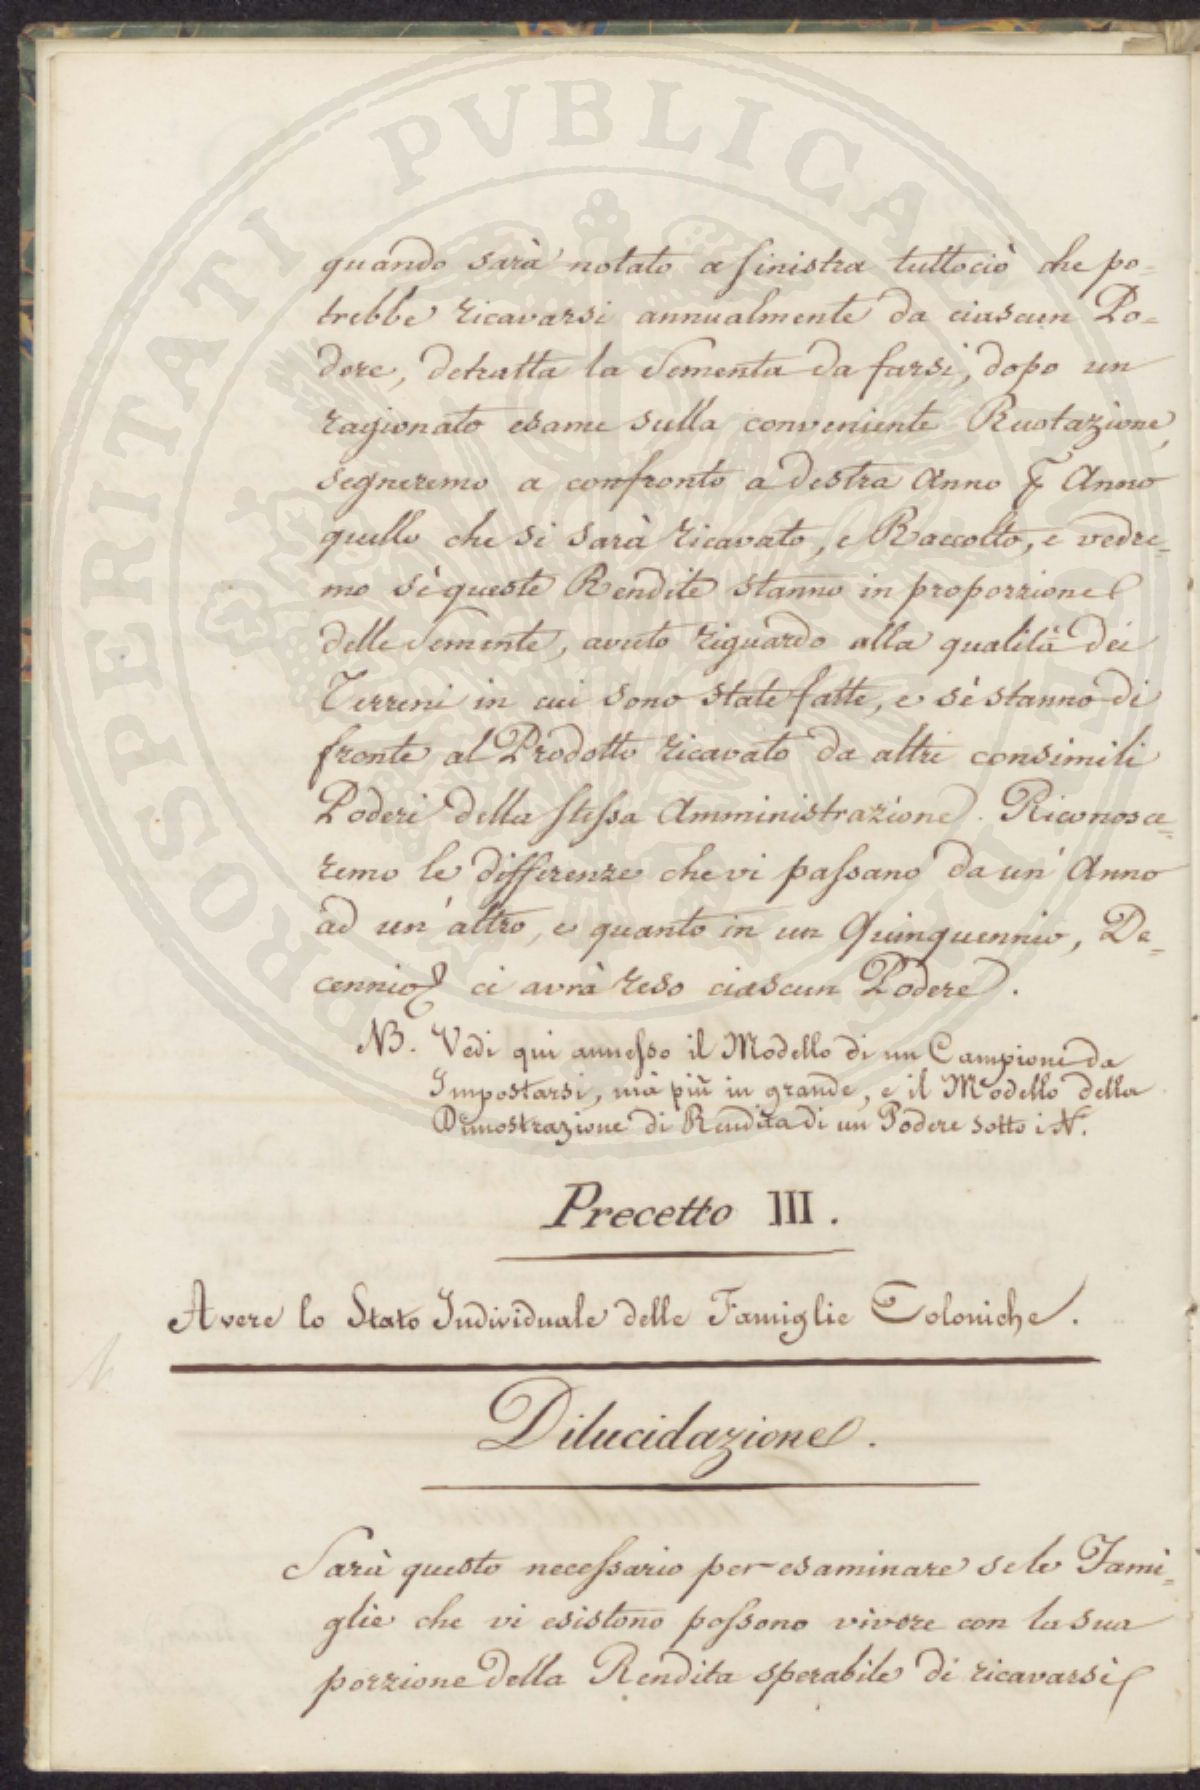 quando sarà notato a sinistra tuttociò che po=
trebbe ricavarsi annualmente da ciascun Po=
dere, detratta la Sementa da farsi, dopo un
ragionato esame sulla conveniente Ruotazione,
segneremo a confronto a destra Anno Anno
quello che si sarà ricavato, e Raccolto, e vedre=
mo sè queste Rendite stanno in proporzione
delle Semente, avuto riguardo alla qualità dei
Terreni in cui sono state fatte, e sè stanno di
fronte al Prodotto ricavato da altri consimili
Poderi della stessa Amministrazione. Riconosce=
remo le differenze che vi passano da un' Anno
ad un' altro, e quanto in un Quinquennio, De=
cennio ci avrà reso ciascun Podere.
NB. Vedi qui annesso il Modello di un Campione da
Impostarsi, mà più in grande, e il Modello della
Dimostrazione di Rendita di un Podere sotto i N.
Precetto III.
Avere lo Stato Individuale delle Famiglie Coloniche.
Dilucidazione.
Sarà questo necessario per esaminare se le Fami=
glie che vi esistono possono vivere con la sua
porzione della Rendita sperabile di ricavarsi
PROSPERITATI PVBLICAE